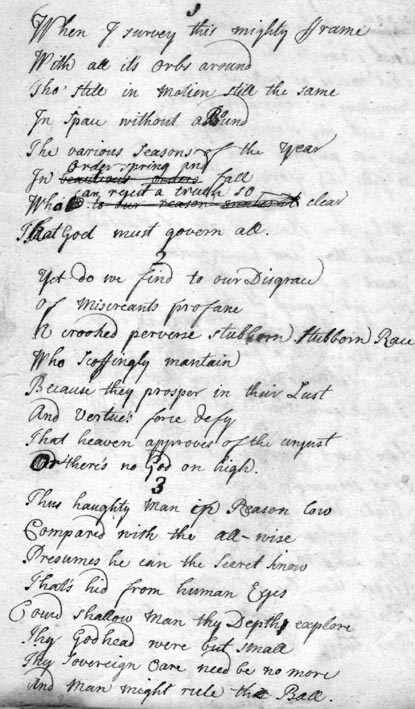 When I survey this mighty Frame
With all its Orbs around
Tho' still in Motion still the same
In Space without a Bound
The various Seasons of the Year
Order spring and
In beautious Orders fall
can resist a truth so
Who to our reason clear
That God must govern all.
2
Yet do we find to our Disgrace
Of Miscreants profane
A crooked perverse stubborn stubborn Race
Who Scoffingly mantain
Because they prosper in their Lust
And Vertue's force defy
That heaven approves of the unjust
Or there's no God on high.
3
Thus haughty Man in Reason low
Compared with the all-wise
Presumes he can the Secret know
That's hid from human Eyes
Cou'd shallow Man thy Depths explore
Thy Godhead were but small
Thy Sovereign Care need be no more
And Man might rule the Ball.